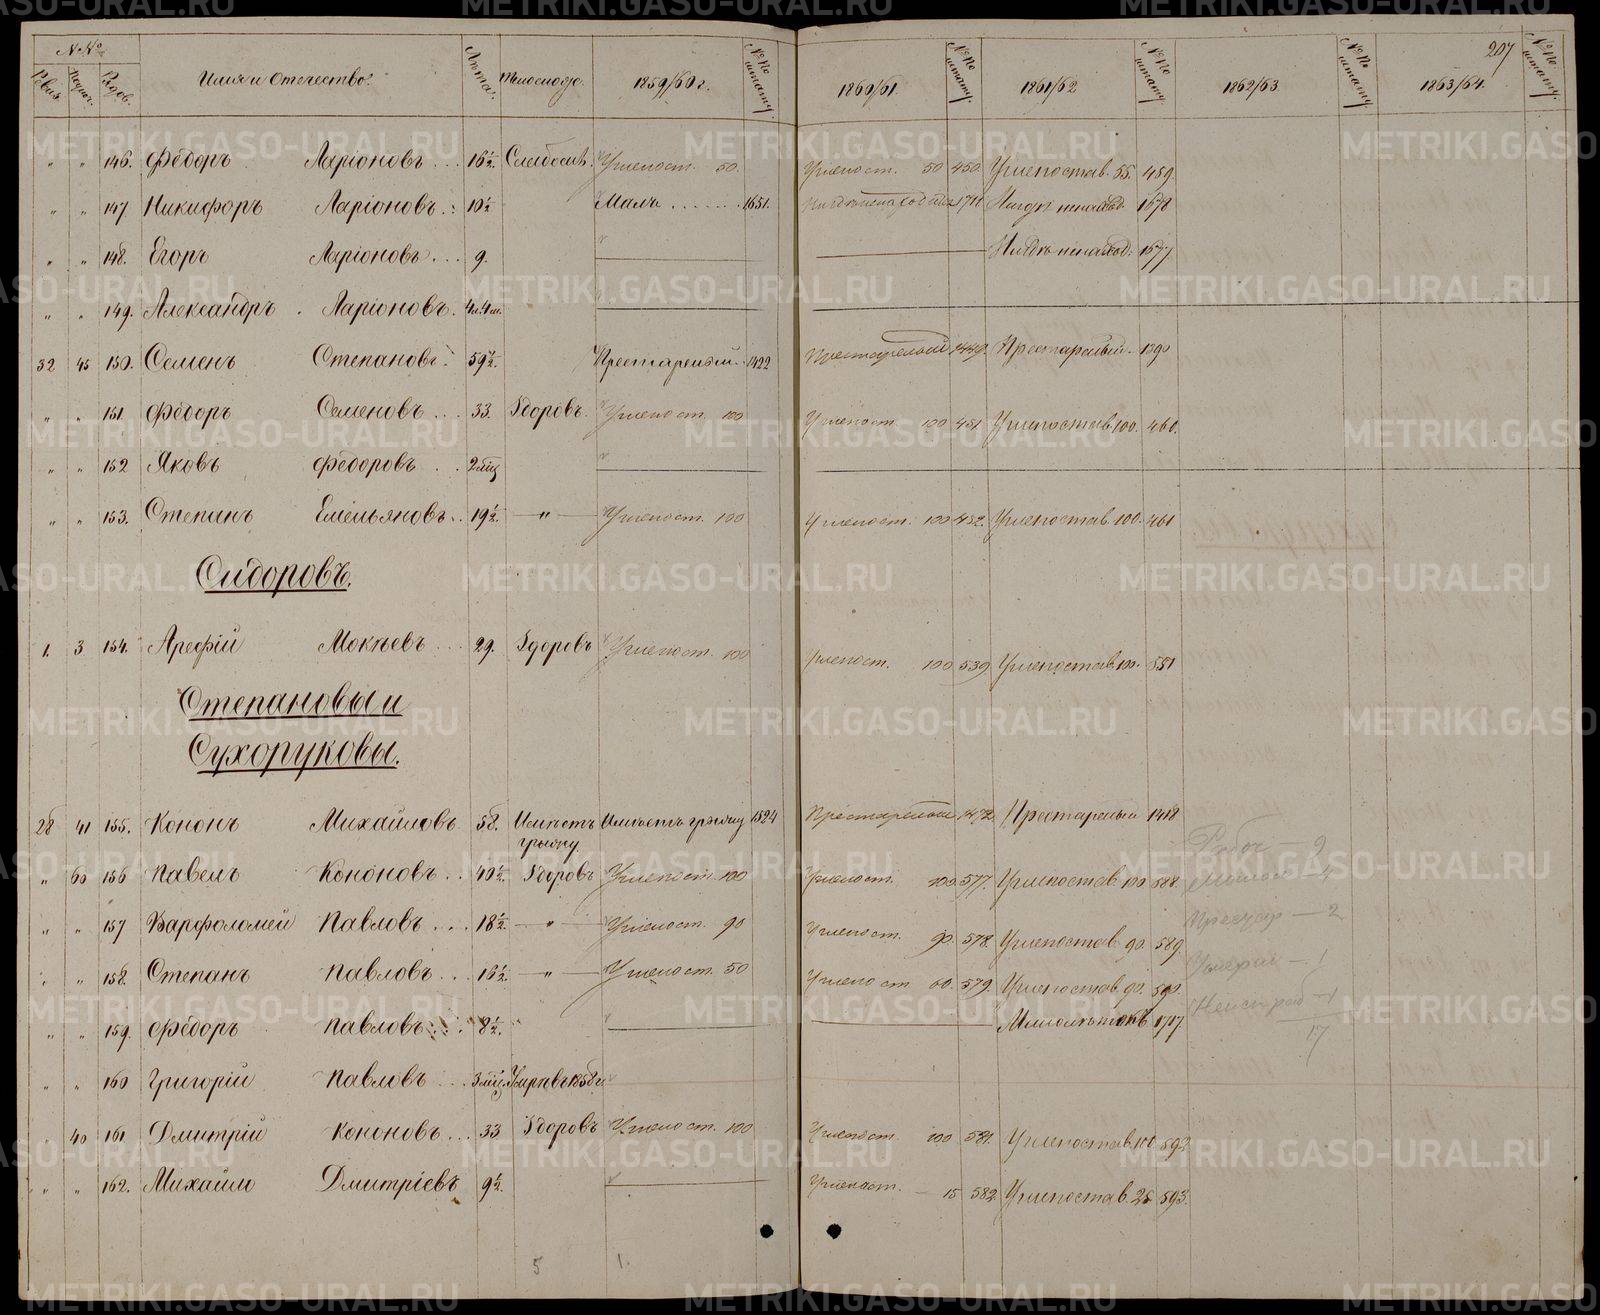 207
№№
Ревиз. Подвор. Рядов. Имя и Отчество. Лѣта. Тѣлослож. 1859/60 г. №№ по штату. 1860/61. №№ по штату. 1861/62 №№ по штату 1862/63 №№ по штату 1863/64. №№ по штату.
" " 146. Ѳедоръ Ларіоновъ... 16½ Слабосил. Углепост. 50. Углепост. 50 450. Углепостав. 55. 459.
" " 147. Никифоръ Ларіоновъ.. 10½ Малъ....... 1651. 1711 1678
" " 148. Егоръ Ларіоновъ... 9. 1677
" " 149. Александръ. Ларіоновъ. 4 л. 4 м.
32 45 150. Семенъ Степановъ. 59½. Престарелый. 1422 Престарелый 1449. Престарелый. 1390
" " 151. Ѳедоръ Семеновъ... 33. Здоровъ. Углепост. 100 Углепост. 100 451 Углепостав. 100. 460.
" " 152 Яковъ Ѳедоровъ.. 2 мѣс
" " 153. Степанъ Емельяновъ.. 19½. — " — Углепост. 100 Углепост. 100 452. Углепостав. 100. 461
Сидоровъ.
1. 3 154. Арефій Мокѣевъ... 29. Здоровъ Углепост. 100 Углепост. 100 539 Углепостав. 100. 551
Степановы и
Сухоруковы.
28 41 155. Кононъ Михайловъ 58. Имѣетъ грыжу. Имѣетъ грыжу 1524 Престарелый 1472 Престарелый 1418
Работ — 9
" 60 156 Павелъ Кононовъ.. 40½. Здоровъ Углепост. 100 Углепост. 100 577. Углепостав. 100 588.
Престар — 2
" " 157 Варфоломей Павловъ... 18½. — " — Углепост. 90 Углепост. 90. 578. Углепостав. 90. 589.
Умерш — 1
" " 158. Степанъ Павловъ... 16½. — " — Углепост. 50 Углепост. 60. 579. Углепостав. 90. 590.
" " 159. Ѳедоръ Павловъ... 8½. Малолѣтокъ 1717
17
" " 160 Григорій Павловъ... 3 мѣс. Умеръ въ 1858 г.
" 40 161. Дмитрій Кононовъ... 33 Здоровъ Углепост. 100 Углепост. 100 581. Углепостав. 100 592
" " 162. Михайло Дмитріевъ 9½. Углепост. — 15 582. Углепостав. 25 593.
5 1.
METRIKI.GASO-URAL.RU